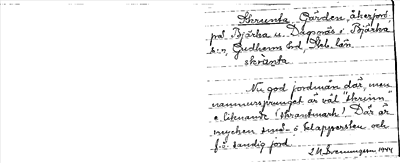 Skrunta, Gården, åkerjord
på Björka u. Dagsnäs i Bjärka
s:n, Gudhems hd, Skb. län.
skrånta
Nu god jordmån där, men
namnursprunget är väl "skrinn"
o. liknande (skrantmark). Där är
mycken små- o. klappersten och
f.ö. sandig jord
J. H. Svenningsson 1944